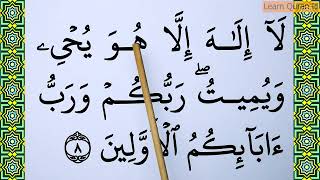 Learn Quran
لَآ إِلَٰهَ إِلَّا هُوَ يُحْىِۦ
وَيُمِيتُ ۖ رَبُّكُمْ وَرَبُّ
ءَابَآئِكُمُ ٱلْأَوَّلِينَ ٨